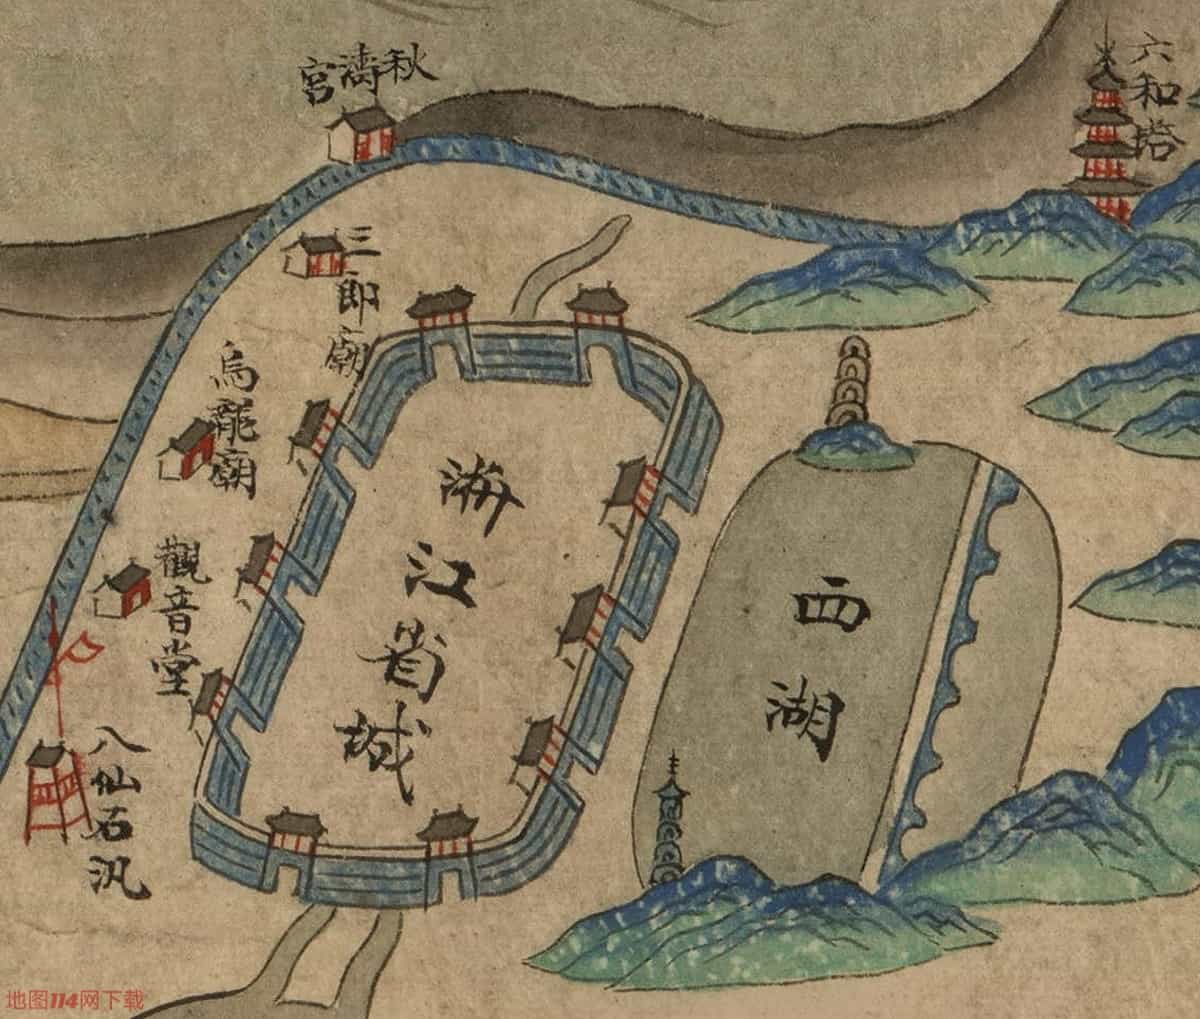 秋濤宮
六和塔
三郎廟
烏龍廟
觀音堂
八仙石汛
浙江省城
西湖
地图114网下载